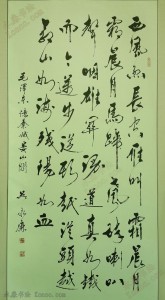 西風烈長空雁叫霜晨月
霜晨月馬蹄聲碎喇叭
聲咽雄關漫道真如鐵
而今邁步從頭越從頭越
蒼山如海殘陽如血
毛澤東憶秦娥婁山關